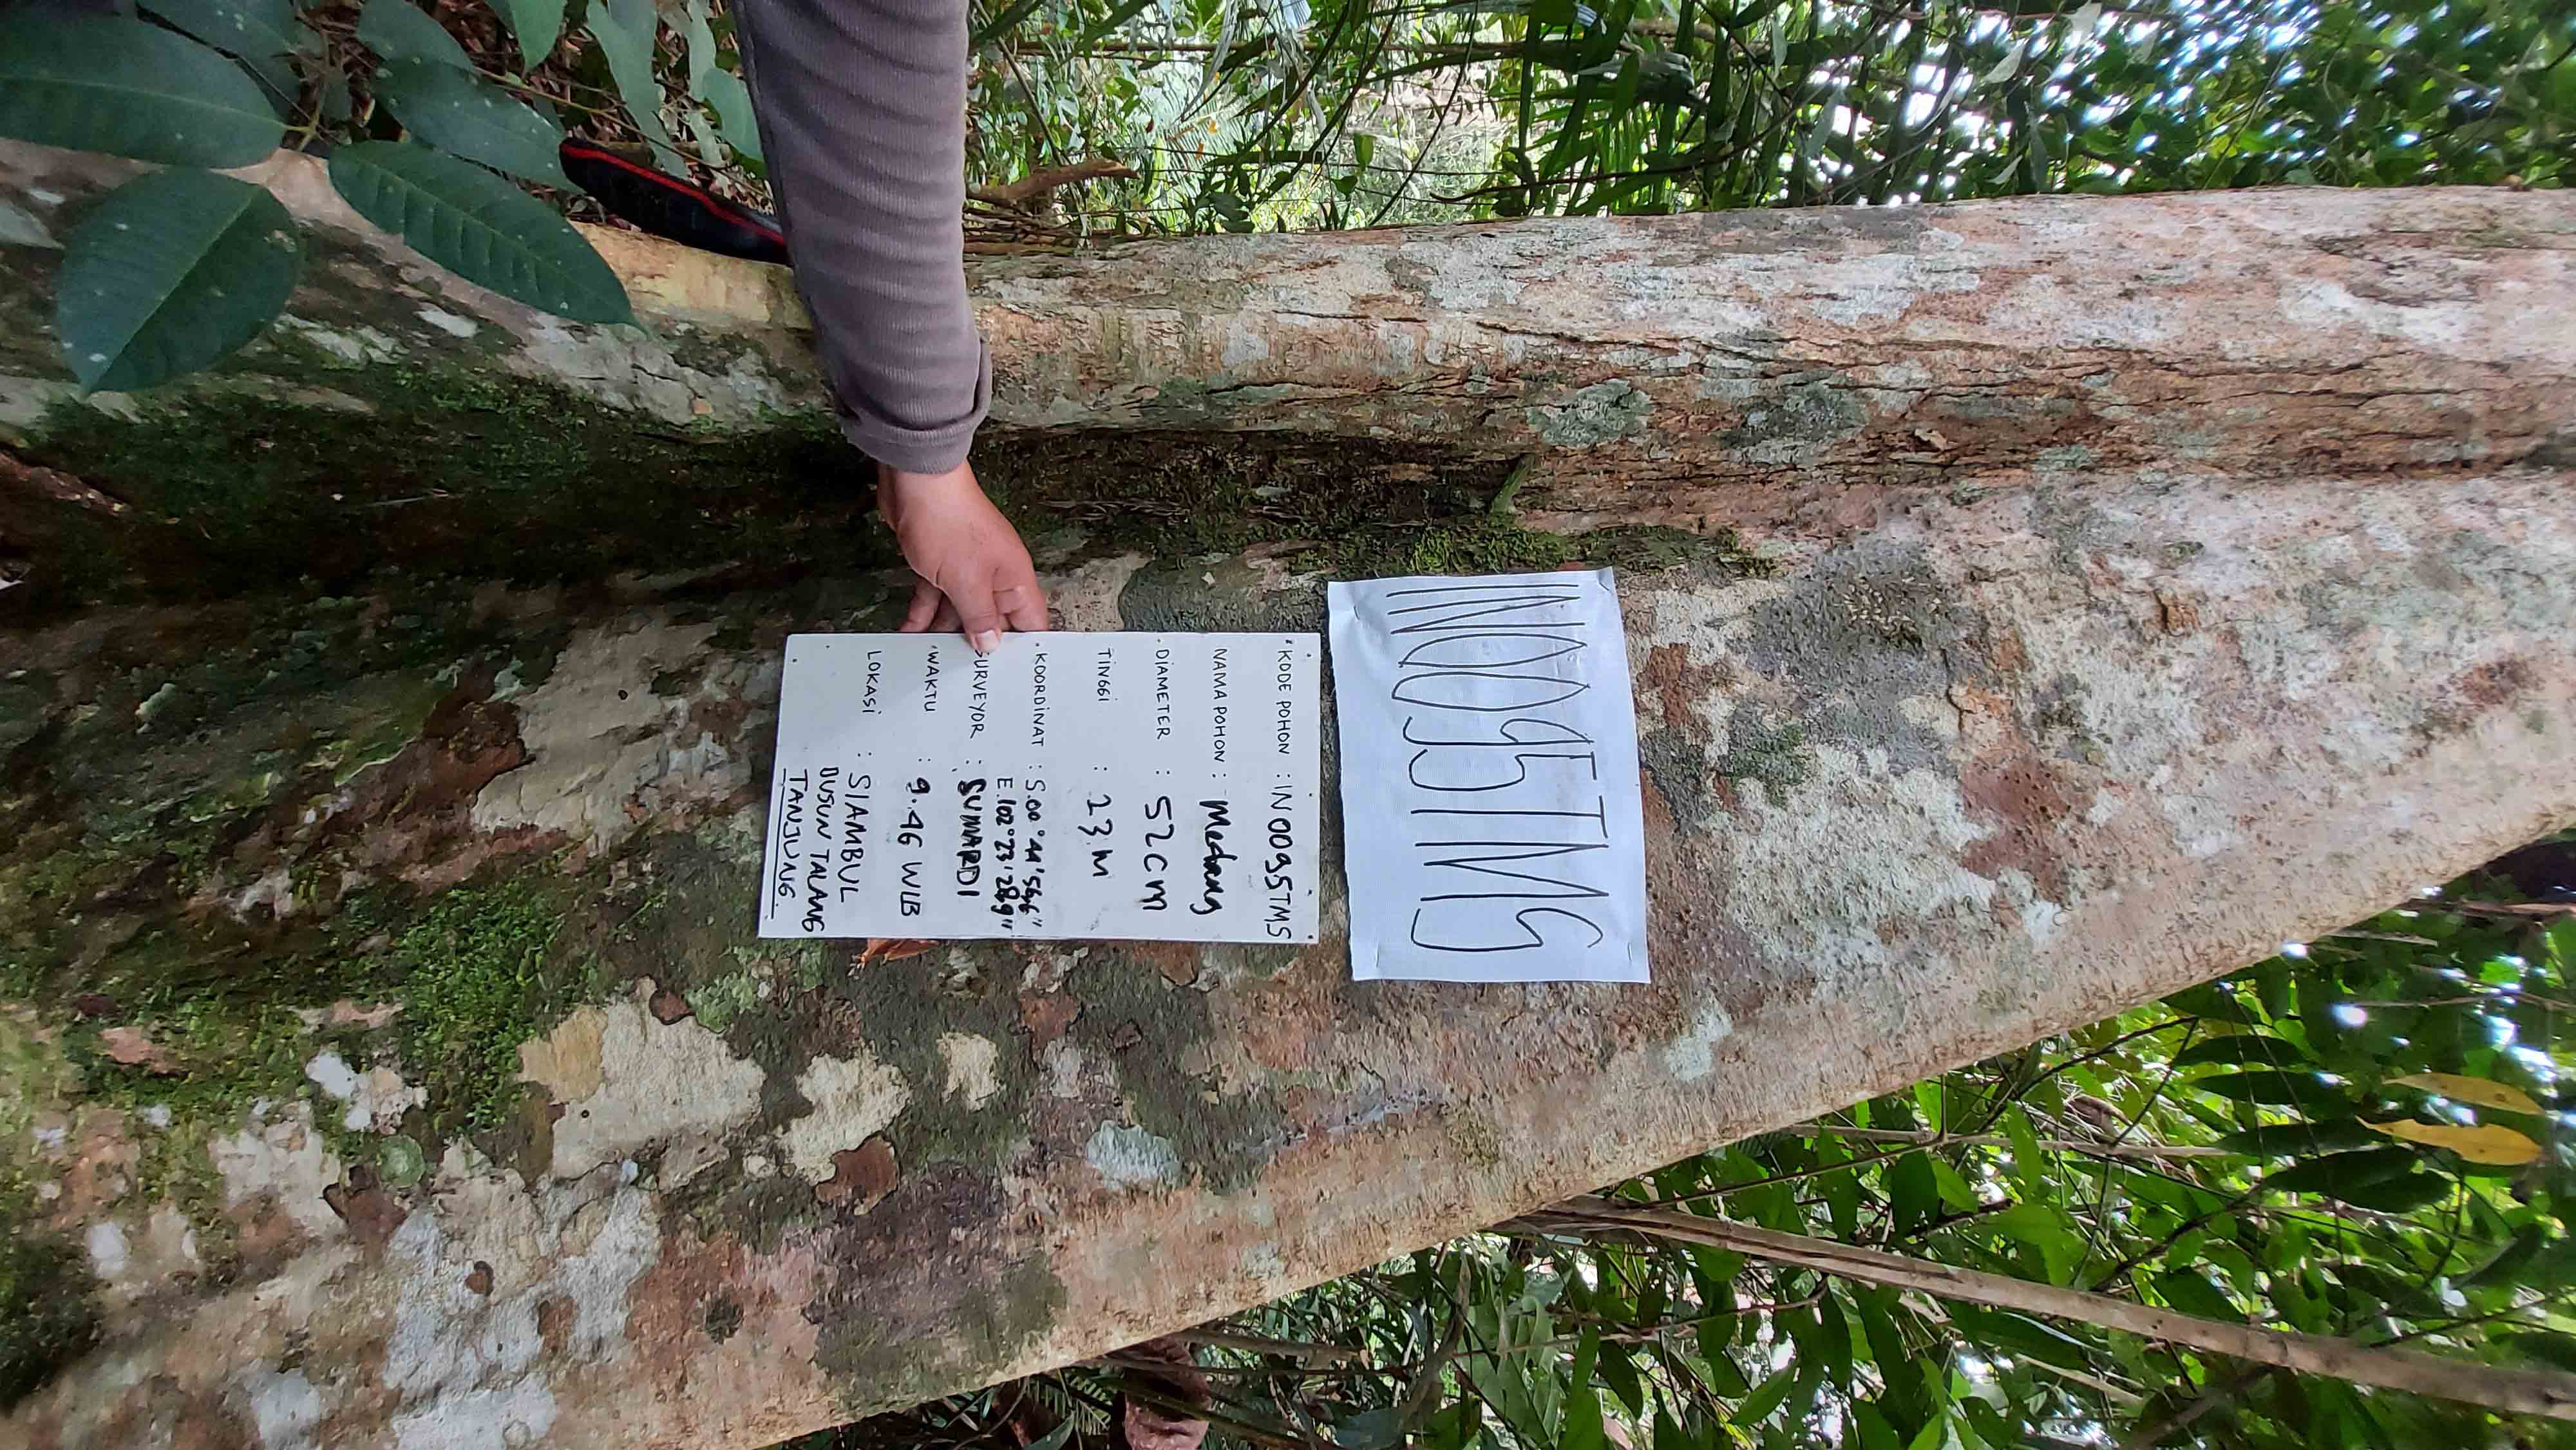 IN0095TMS
KODE POHON : IN0095TMS
NAMA POHON : Medang
DIAMETER : 52cm
TINGGI : 23 M
KOORDINAT : S.00°44'56,6"
E.102°23'28,9"
SURVEYOR : SUMARDI
WAKTU : 9.46 WIB
LOKASI : SIAMBUL
DUSUN TALANG
TANJUNG.